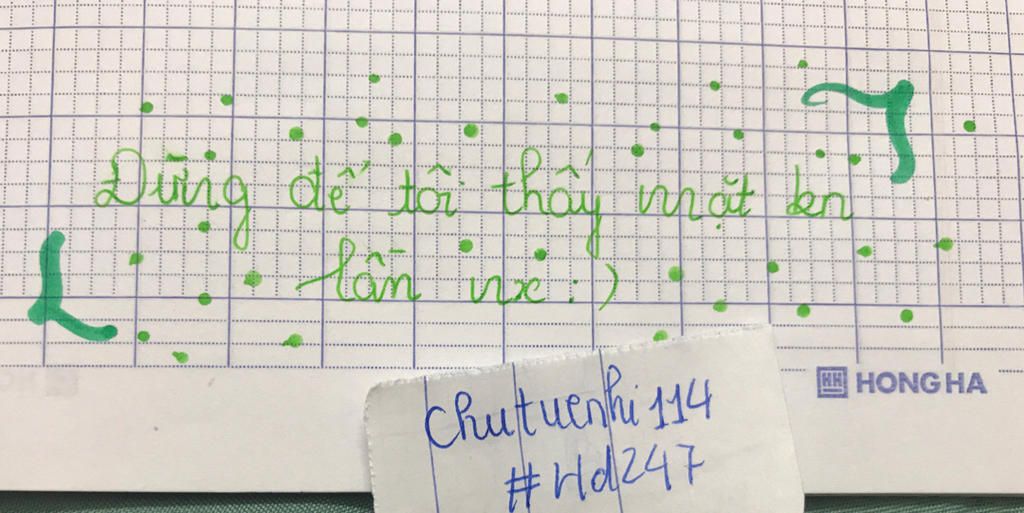 Đừng để tôi thấy mặt bn
lần nx :)
HONG HA
Chutuenhi114
#Hd247